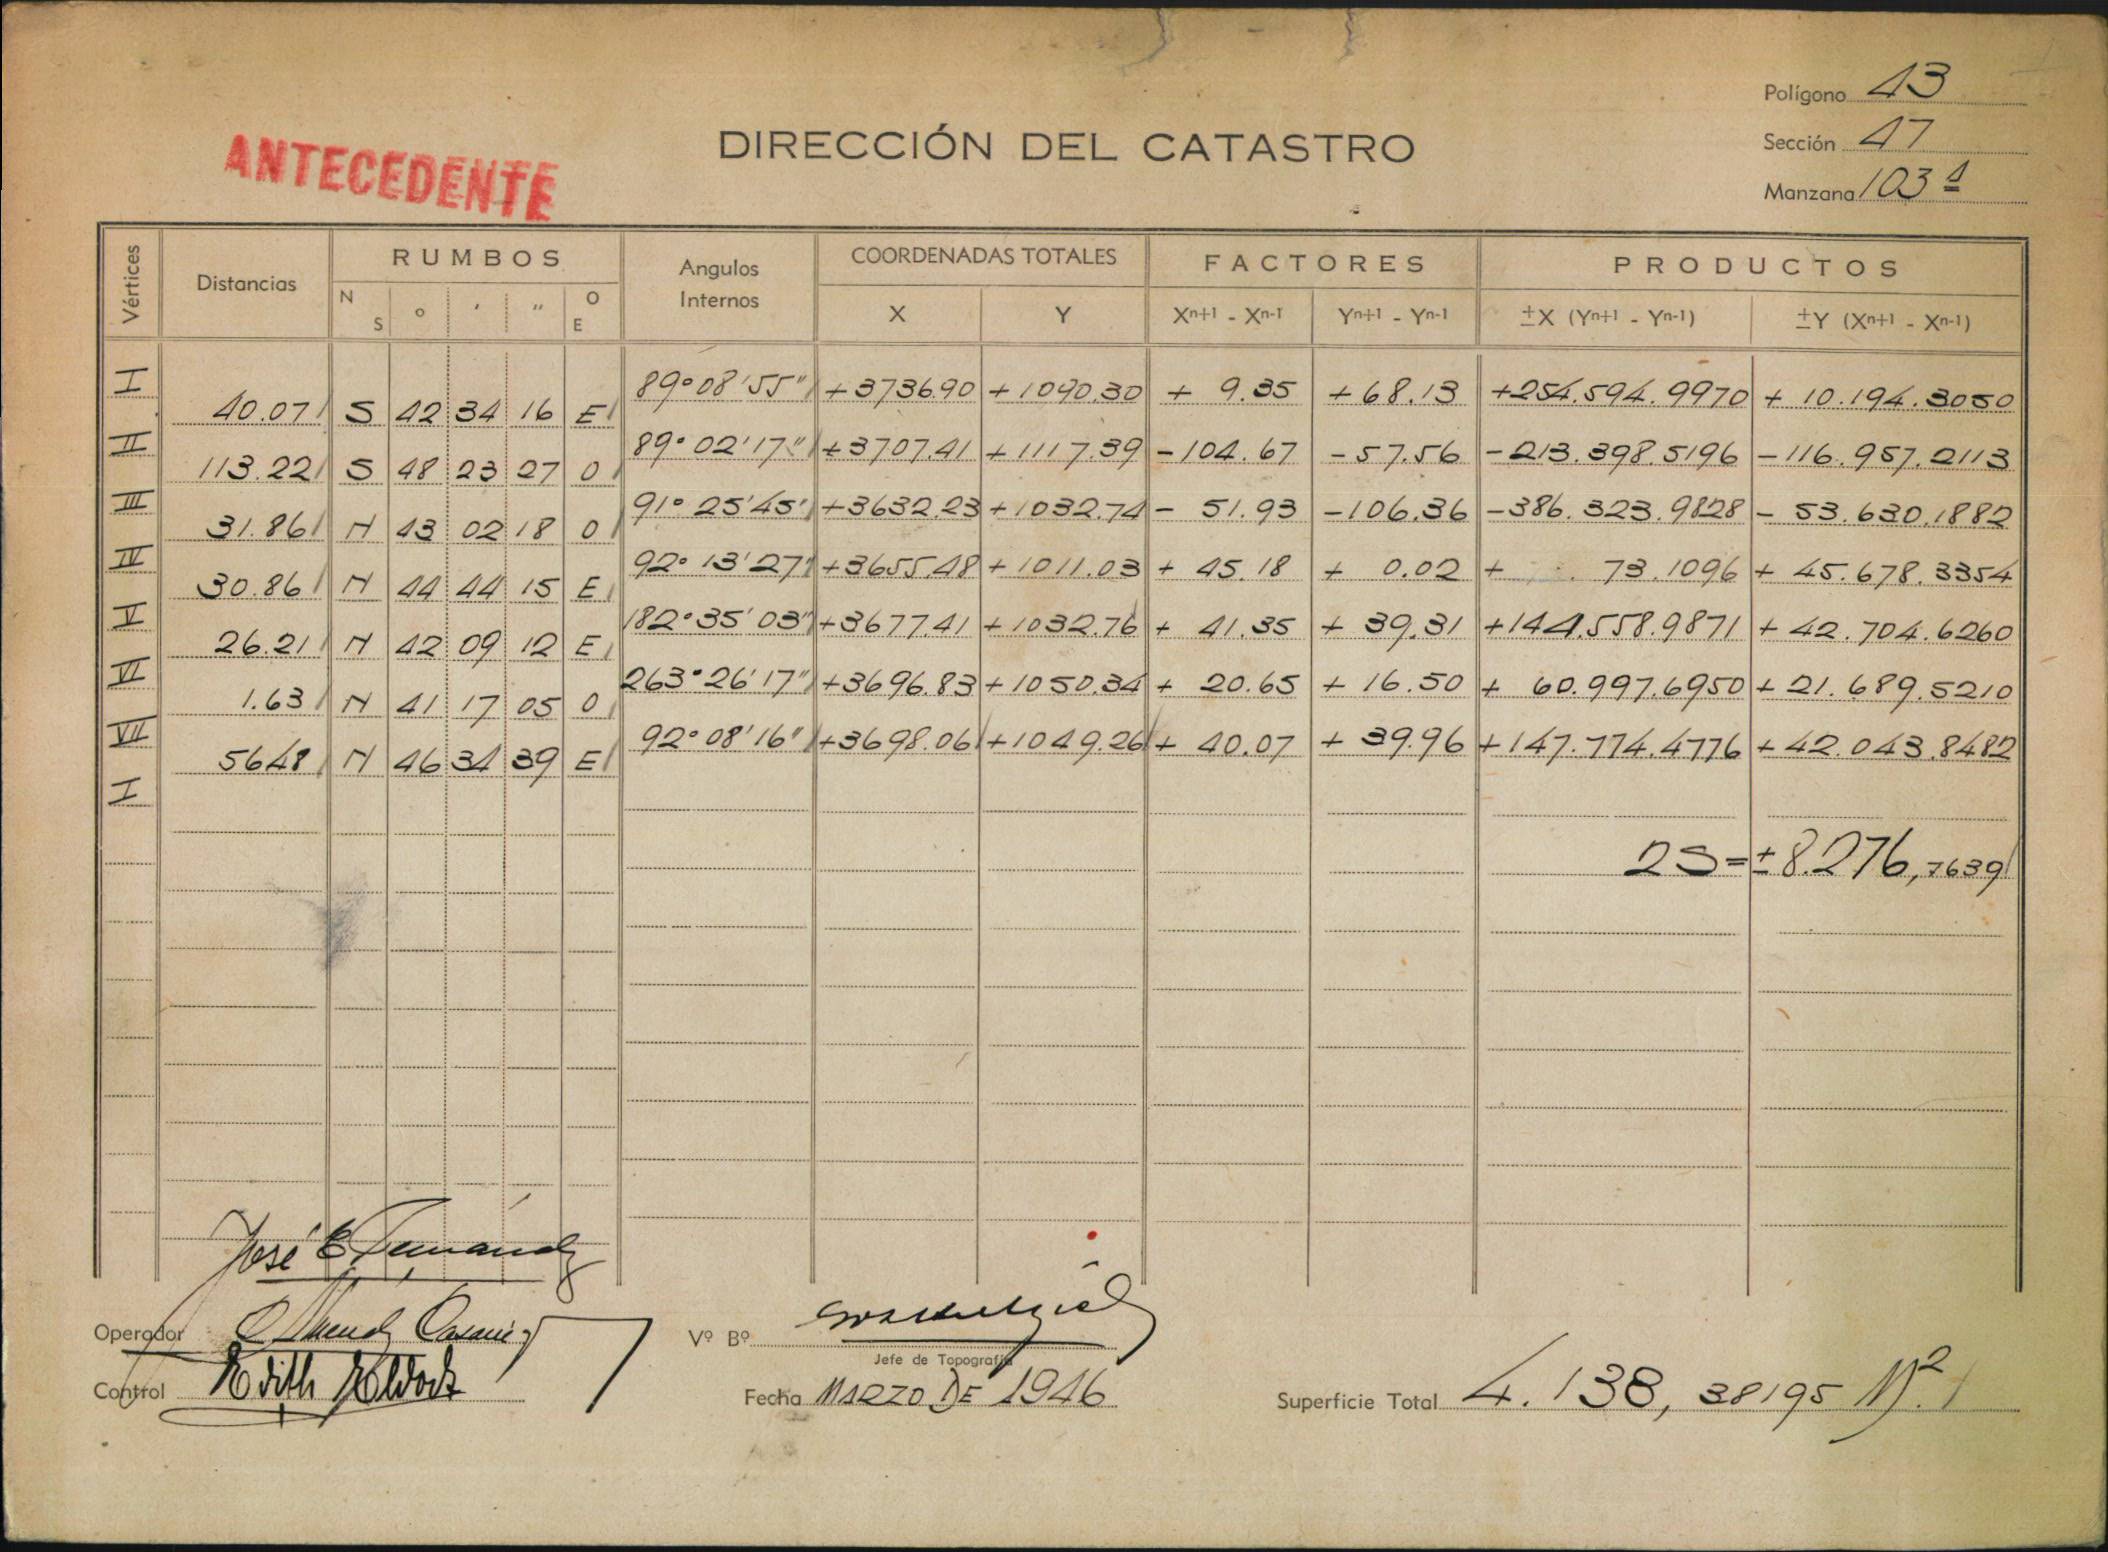 Polígono 43
ANTECEDENTE
DIRECCIÓN DEL CATASTRO
Sección 47
Manzana 103 A
Vértices Distancias RUMBOS Angulos Internos COORDENADAS TOTALES FACTORES PRODUCTOS
N S ° ' " O E X Y Xn+1 - Xn-1 Yn+1 - Yn-1 ±X (Yn+1 - Yn-1) ±Y (Xn+1 - Xn-1)
I 89°08'55" +3736.90 +1090.30 + 9.35 +68.13 +254.594.9970 + 10.194.3050
40.07 S 42 34 16 E
II 89°02'17" +3707.41 +1117.39 -104.67 -57.56 -213.398.5196 -116.957.2113
113.22 S 48 23 27 O
III 91°25'45" +3632.23 +1032.74 - 51.93 -106.36 -386.323.9828 - 53.630.1882
31.86 N 43 02 18 O
IV 92°13'27" +3655.48 +1011.03 + 45.18 + 0.02 + 73.1096 + 45.678.3354
30.86 N 44 44 15 E
V 182°35'03" +3677.41 +1032.76 + 41.35 + 39.31 +144.558.9871 + 42.704.6260
26.21 N 42 09 12 E
VI 263°26'17" +3696.83 +1050.34 + 20.65 + 16.50 + 60.997.6950 + 21.689.5210
1.63 N 41 17 05 O
VII 92°08'16" +3698.06 +1049.26 + 40.07 + 39.96 +147.774.4776 + 42.043.8482
56.48 N 46 34 39 E
I
2S = ± 8.276,7639
José E Fernández
Operador
Vº Bº
Jefe de Topografía
Control Edith
Fecha MARZO DE 1946
Superficie Total 4.138,38195 M2.